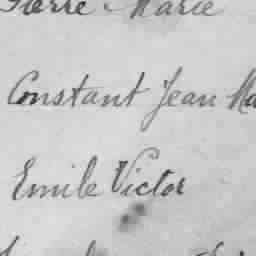 Pierre Marie
Constant Jean Ma
Emile Victor